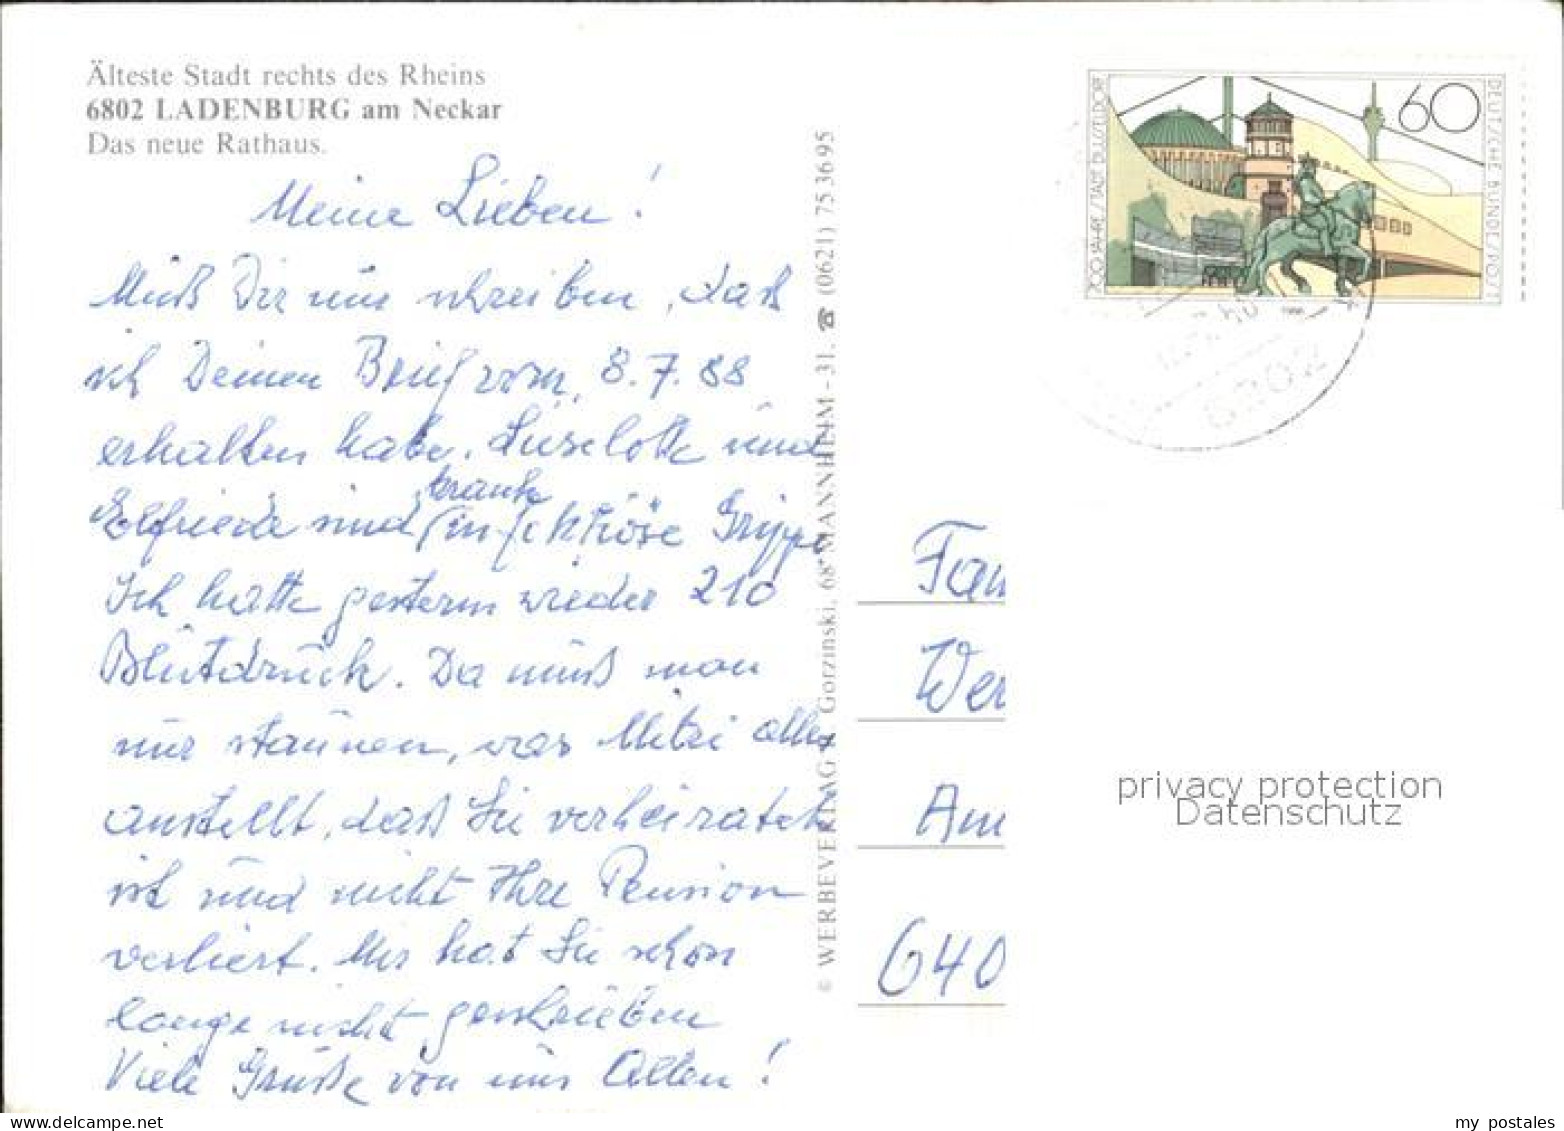 Älteste Stadt rechts des Rheins
6802 LADENBURG am Neckar
Das neue Rathaus.
Meine Lieben!
Muß Dir nur schreiben, daß
ich Deinen Brief vom 8.7.88
erhalten habe. Liselotte und
Elfriede sind krank
(infektiöse Grippe
Ich hatte gestern wieder 210
Blutdruck. Da muß man
nur staunen, was Mitzi alles
anstellt, daß Sie verheiratet
ist und nicht Ihre Pension
verliert. Mir hat Sie schon
lange nicht geschrieben
Viele Grüße von uns Allen!
© WERBEVERLAG Gorzinski, 68 MANNHEIM-31, ☎ (0621) 75 36 95
700 JAHRE/STADT DÜSSELDORF
60
DEUTSCHE BUNDESPOST
1988
6802
Fam
Wer
Am
640
privacy protection
Datenschutz
my postales